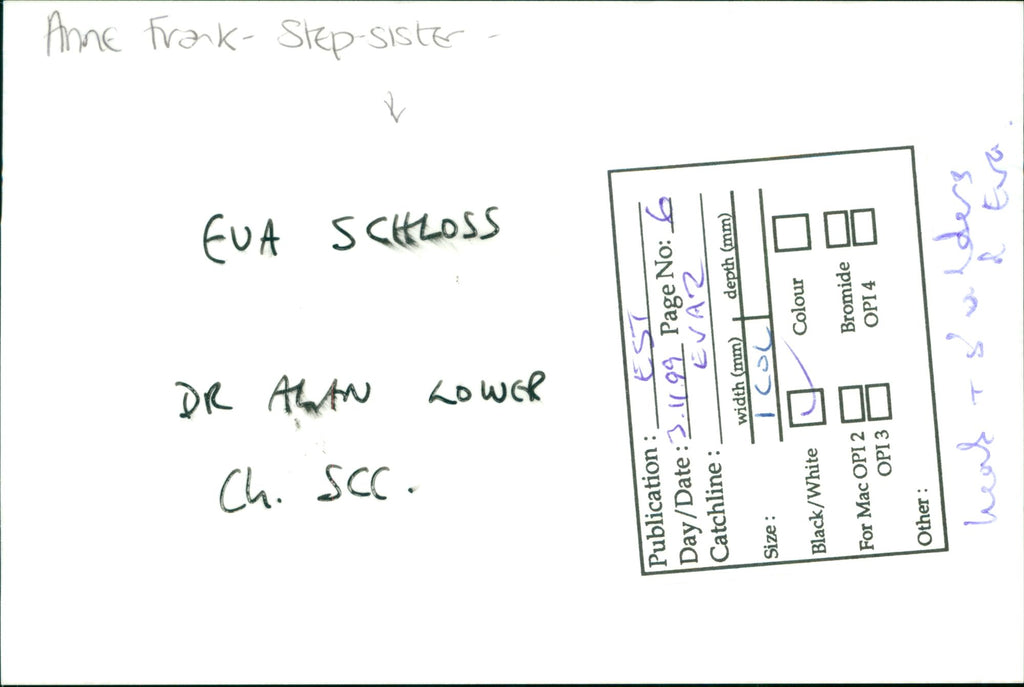 Anne Frank - Step-sister -
EVA SCHLOSS
DR ALAN LOWER
Ch. SCC.
Publication: EST
Day/Date: 3.11.99 Page No: 6
Catchline: EVA2
width (mm) depth (mm)
Size: 1 COL
Black/White Colour
For Mac OPI 2 Bromide
OPI 3 OPI 4
Other:
head + shoulders
Eva.